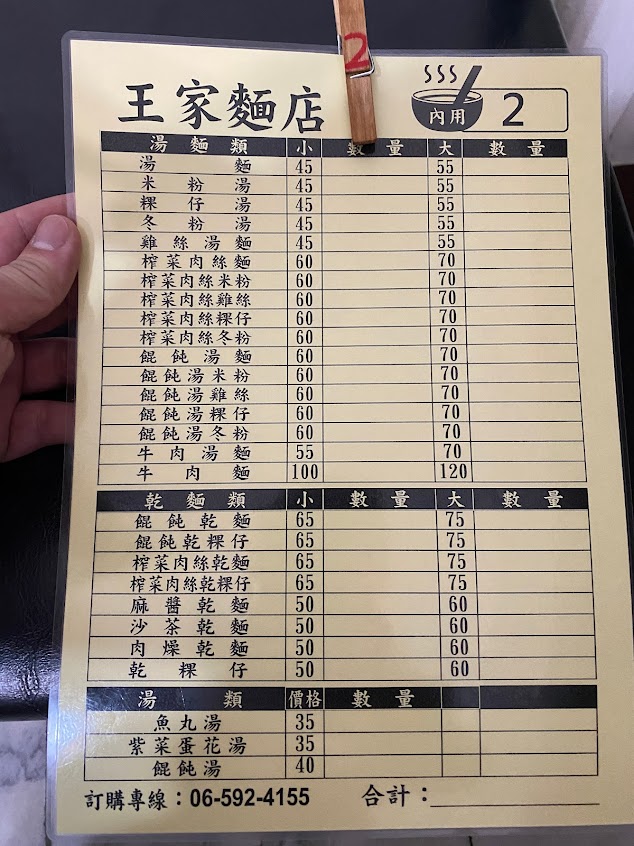 2
王家麵店
內用 2
湯麵類 小 數量 大 數量
湯麵 45 55
米粉湯 45 55
粿仔湯 45 55
冬粉湯 45 55
雞絲湯麵 45 55
榨菜肉絲麵 60 70
榨菜肉絲米粉 60 70
榨菜肉絲雞絲 60 70
榨菜肉絲粿仔 60 70
榨菜肉絲冬粉 60 70
餛飩湯麵 60 70
餛飩湯米粉 60 70
餛飩湯雞絲 60 70
餛飩湯粿仔 60 70
餛飩湯冬粉 60 70
牛肉湯麵 55 70
牛肉麵 100 120
乾麵類 小 數量 大 數量
餛飩乾麵 65 75
餛飩乾粿仔 65 75
榨菜肉絲乾麵 65 75
榨菜肉絲乾粿仔 65 75
麻醬乾麵 50 60
沙茶乾麵 50 60
肉燥乾麵 50 60
乾粿仔 50 60
湯類 價格 數量
魚丸湯 35
紫菜蛋花湯 35
餛飩湯 40
訂購專線：06-592-4155 合計：